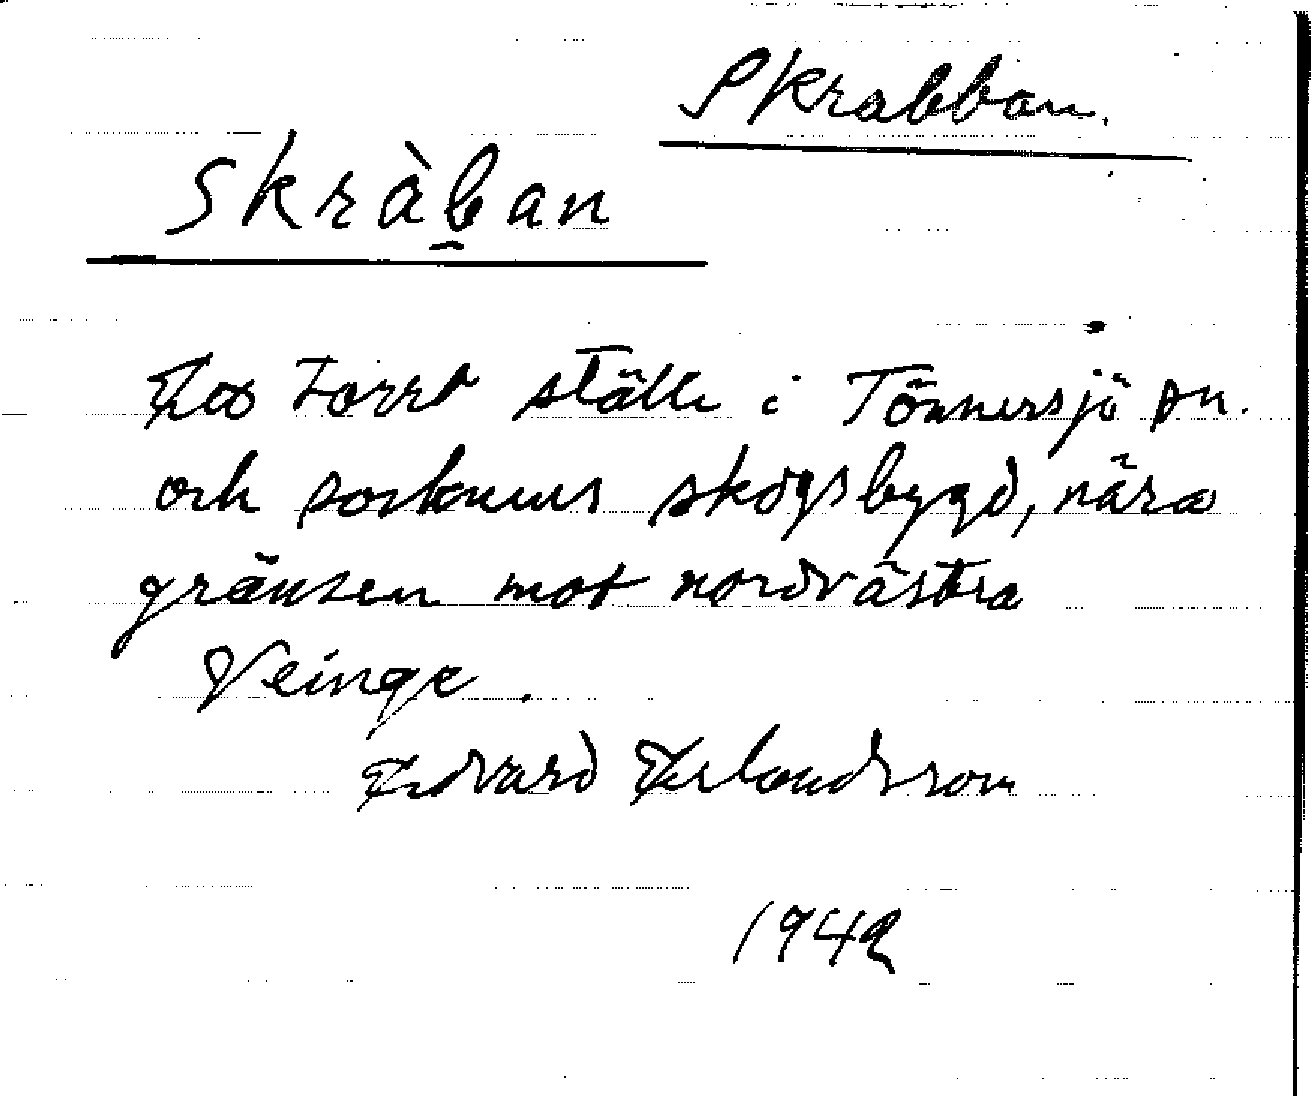 Skrabban.
Skràb̯an
Ett torrt ställe i Tönnersjö sn.
och socknens skogsbygd, nära
gränsen mot nordvästra
Veinge.
Edvard Erlandsson
1942